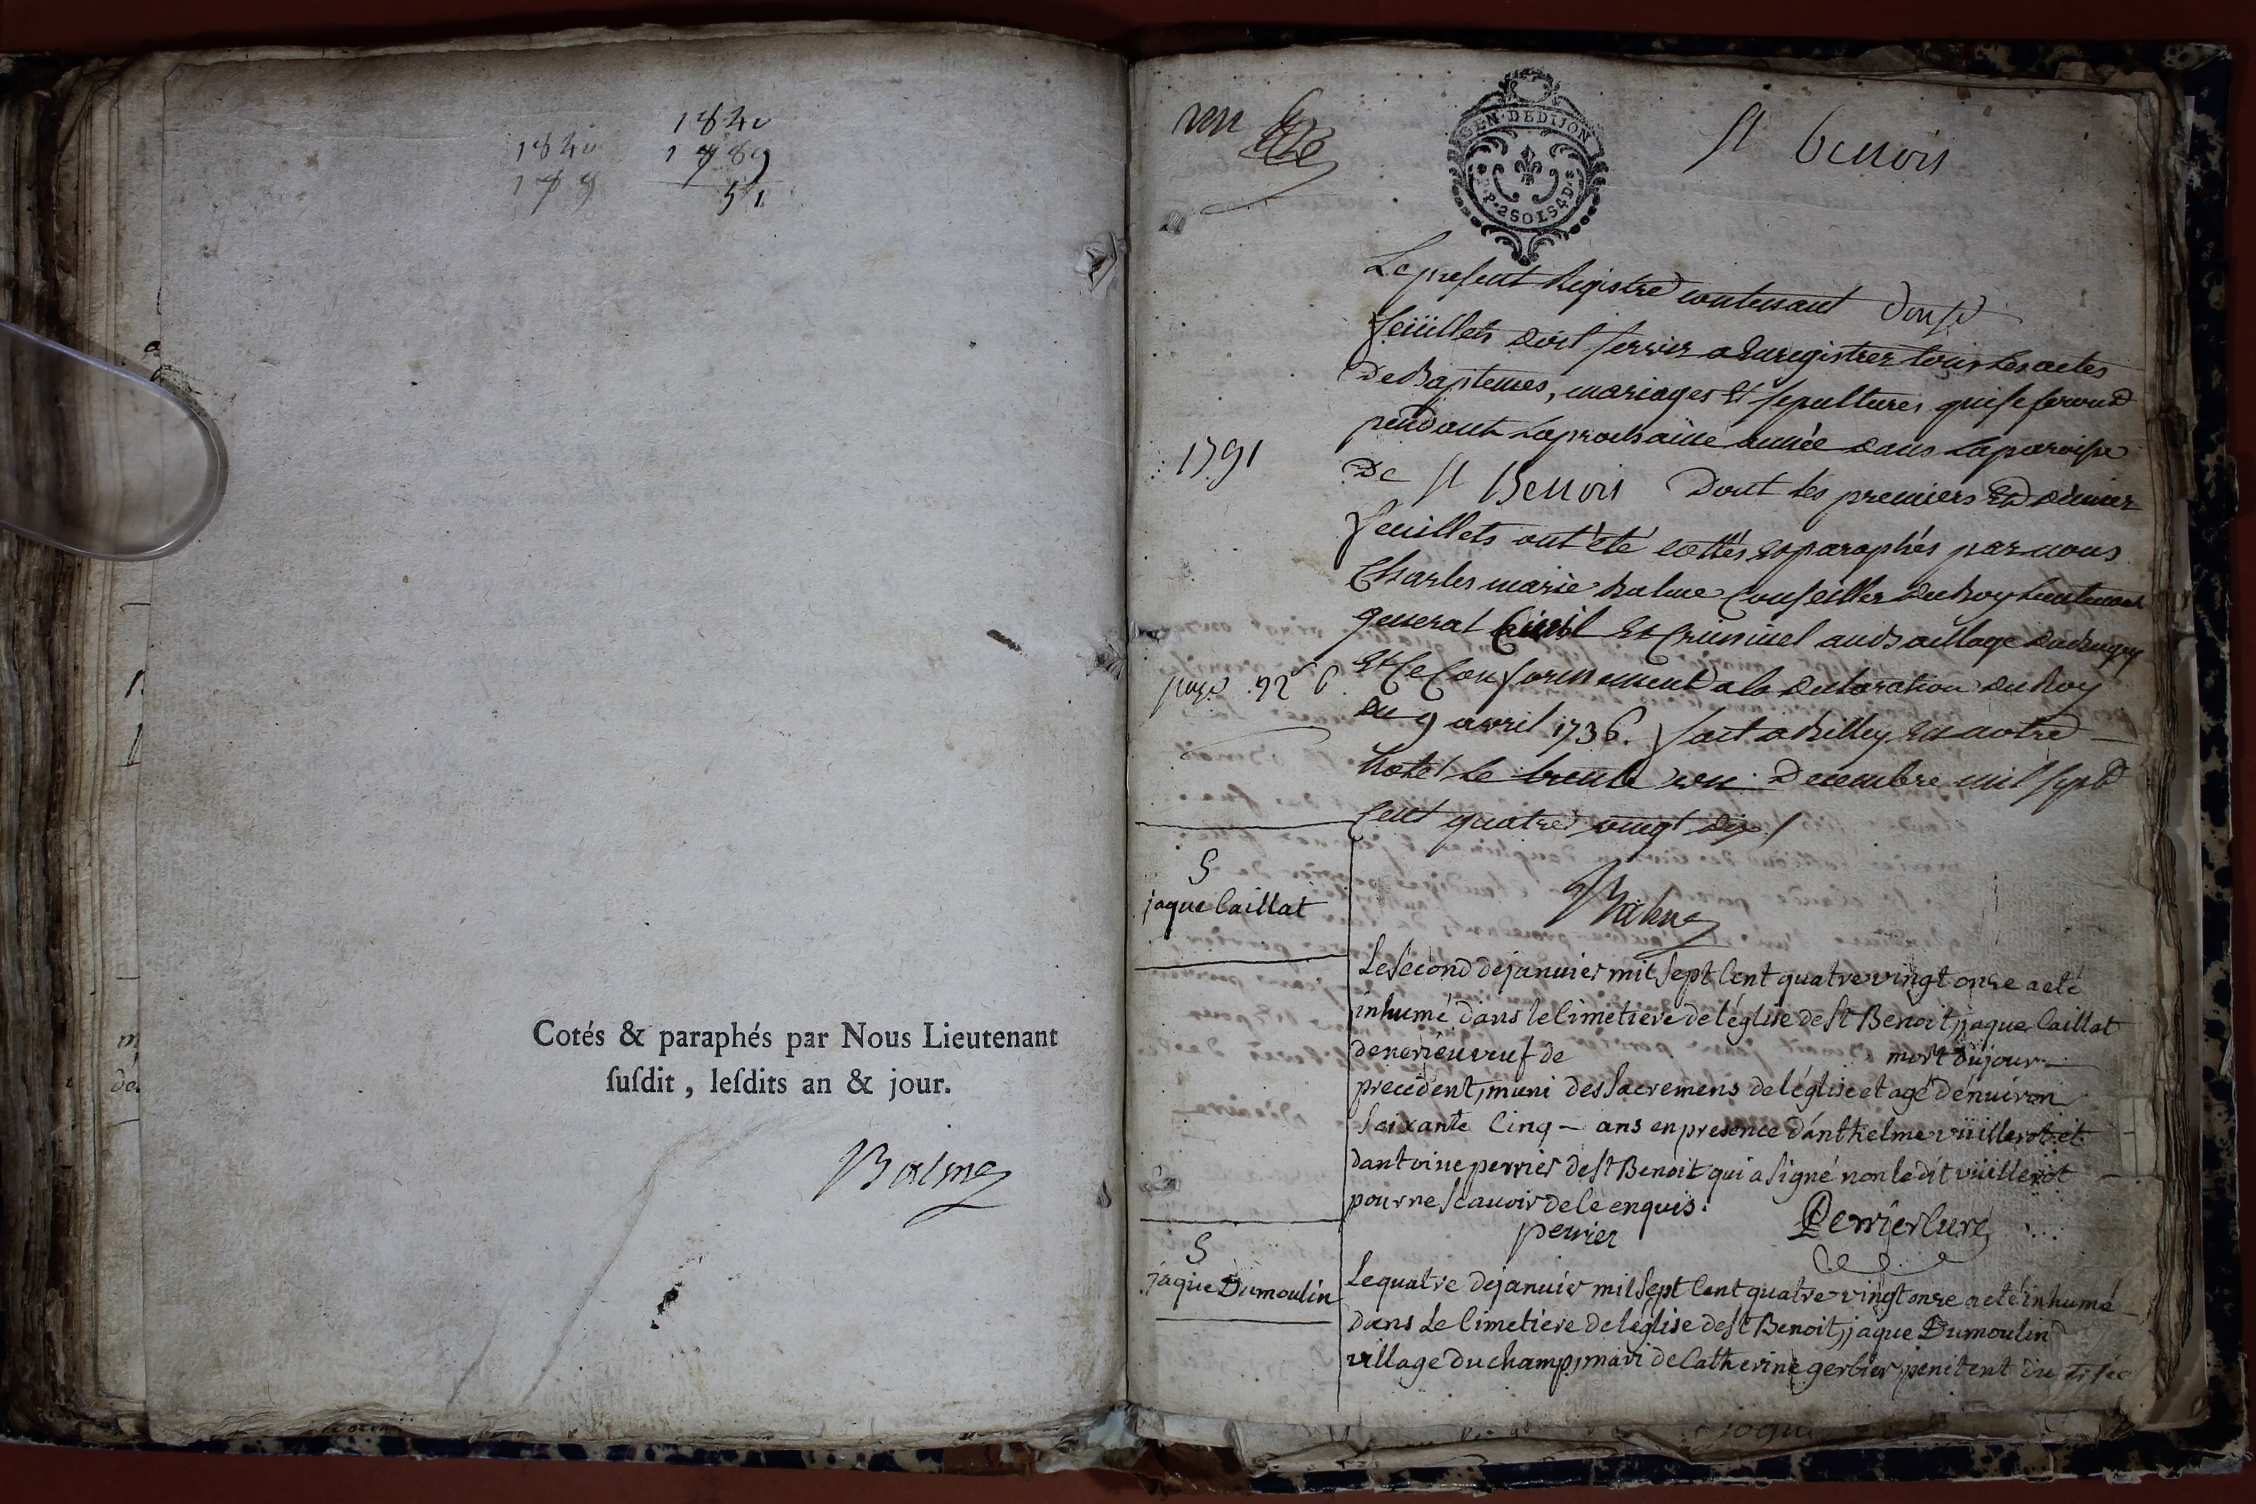 1840
1840
1789
179
51
Cotés & paraphés par Nous Lieutenant
ſuſdit, leſdits an & jour.
Balme
un
GEN·DE DIJON
P·2SOLS4D
st benois
Le present Registre contenant douse
feüillets doit servir a Enregistrer tous les actes
De Baptemes, mariages Et sepultures qui se feront
pendant la prochaine année dans la paroisse
1791
De st Benois Dont les premiers Et dernier
feuillets ont été cottés et paraphés par nous
Charles marie Balme Conseiller du Roy Lieutenant
general Civil Et Criminel au Bailliage du Bugey
page 92
Et ce Conformement a la declaration du Roy
du 9 avril 1736. fait a Belley en notre
hotel Le trente un Decembre mil sept
Cent quatre vingt dix /
Balme
S
jaque Caillat
Le second de janvier mil sept Cent quatre vingt onze a eté
inhumé dans le Cimetiere de léglise de st Benoit, jaque Caillat
de nerieu veuf de mort du jour
precedent, muni des sacremens de léglise et agé dénviron
soixante Cinq - ans en presence dánthelme vüillerot et
dantoine perrier de st Benoit qui a signé non le dit vüillerot
pour ne scavoir de ce enquis.
perrier Perrier Curé
S
jaque Dumoulin
Le quatre de janvier mil sept Cent quatre vingt onze a eté inhumé
dans Le Cimetiere de léglise de st Benoit, jaque Dumoulin
village du champ, mari de Catherine gerbier penitent du